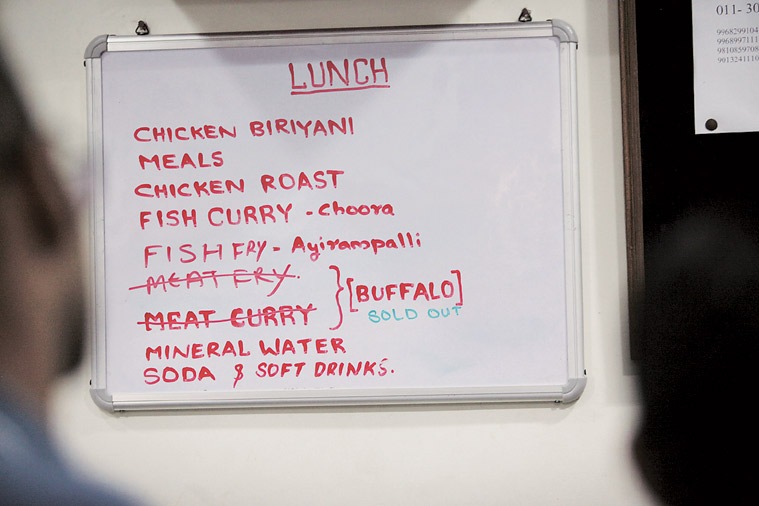 LUNCH
CHICKEN BIRIYANI
MEALS
CHICKEN ROAST
FISH CURRY - Choora
FISH FRY - Ayirampalli
MEAT FRY.
MEAT CURRY
[BUFFALO]
SOLD OUT
MINERAL WATER
SODA & SOFT DRINKS.
011- 30